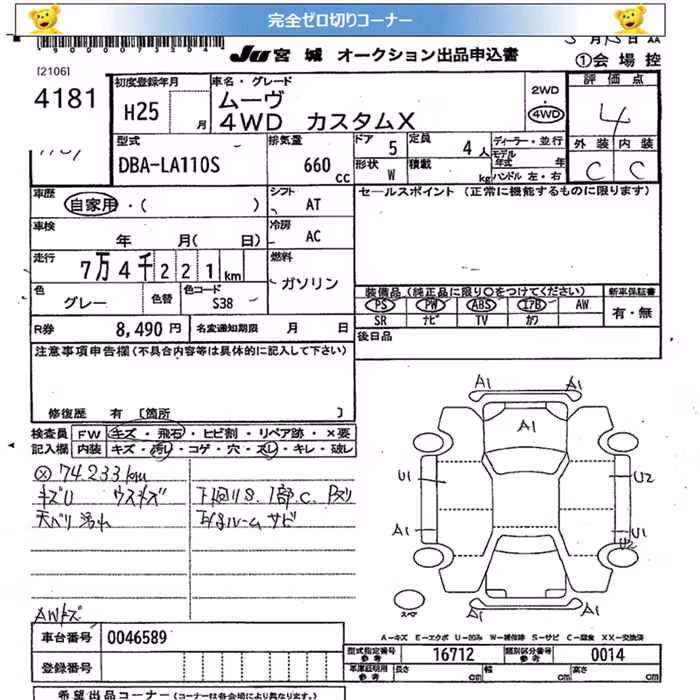 完全ゼロ切りコーナー
Ju 宮城 オークション出品申込書
[2106]
①会場控
4181
初度登録年月
H25 月
車名・グレード
ムーヴ
4WD カスタムX
2WD
4WD
評価点
4
外装 内装
C C
型式
DBA-LA110S
排気量
660 CC
ドア 5
定員 4 人
形状 W
積載 kg
ディーラー・並行
モデル年式 年
ハンドル 左・右
車歴
自家用・( )
シフト
AT
セールスポイント (正常に機能するものに限ります)
車検
年 月( 日)
冷房
AC
走行
7万4千221km
燃料
ガソリン
色
グレー
色替
色コード
S38
装備品(純品に限り○をつけてください)
PS PW ABS エアB AW
SR ナビ TV カワ
新車保証書
有・無
R券 8,490円
名変通知期限 月 日
後日品
注意事項申告欄(不具合内容等は具体的に記入して下さい)
修復歴 有 〔箇所 〕
検査員 記入欄
FW キズ・飛石・ヒビ割・リペア跡・×要
内装 キズ・汚れ・コゲ・穴・スレ・キレ・破レ
ⓧ 74,233km
キズU ウスキズ
下廻りS、1部C、Pズリ
天ベリ汚れ
ルームサビ
AWキズ
A1 A1
A1
U1 U2
A1 U1
U2
A1 A1
スペア
A-キズ E-エクボ U-凹み W-補修跡 S-サビ C-腐食 XX-交換済
車台番号 0046589
登録番号
型式指定番号 参考 16712
類別区分番号 参考 0014
車庫証明用 参考 長さ cm 幅 cm 高さ cm
希望出品コーナー(コーナーは各会場により異なります。)